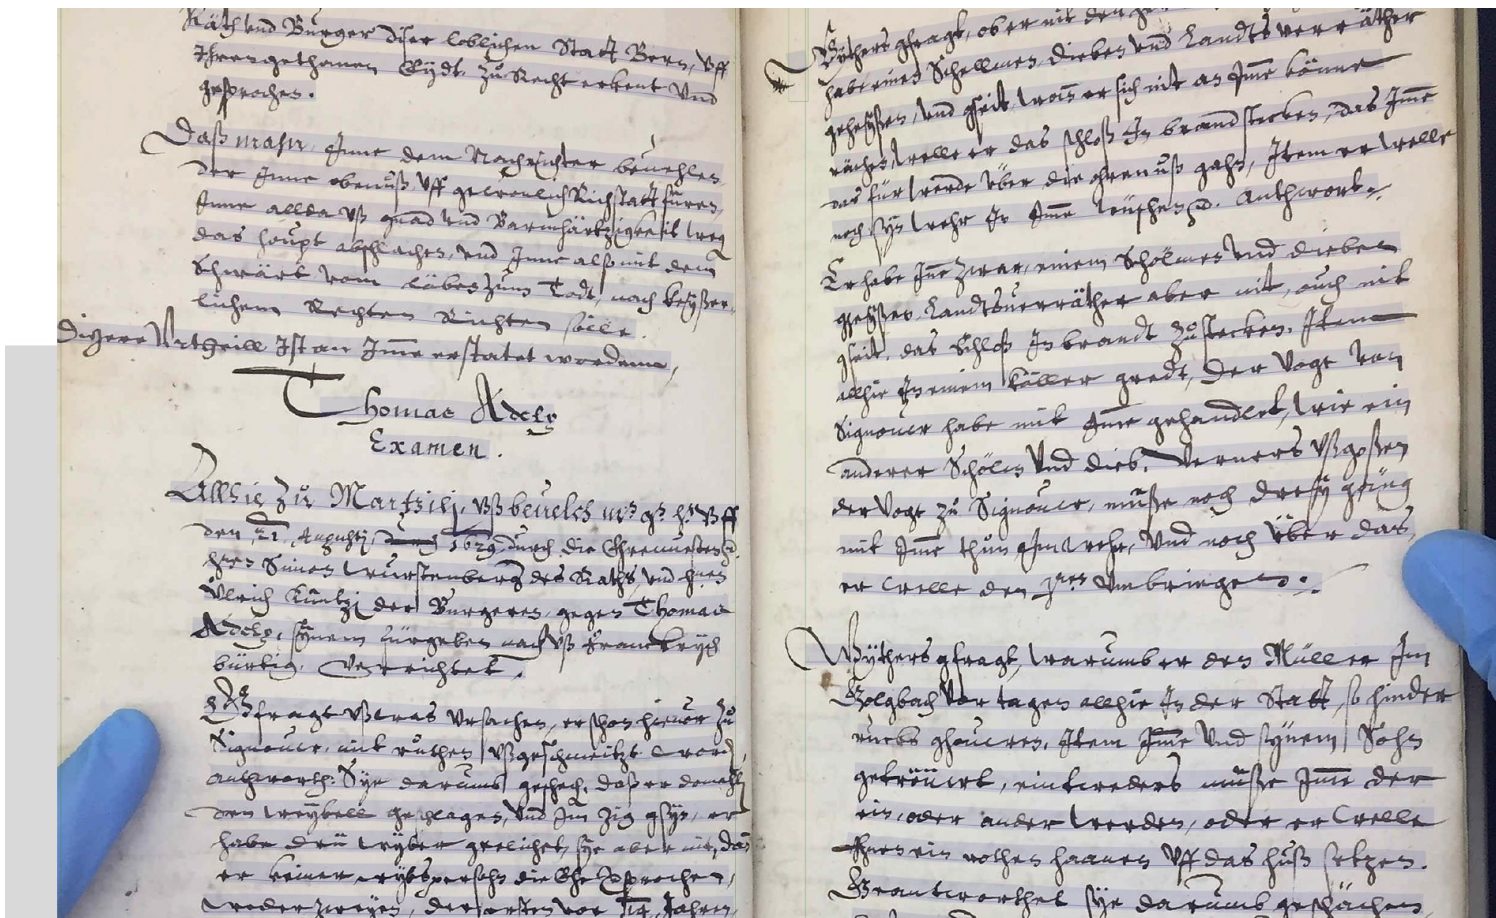 Räth und Burger diser loblichen Statt Bern, uff
Ihren gethanen Eydt, zu Recht erkent und
gesprochen.
Daß mahn Inne dem Nachrichter bevehlen,
der Inne obenuß uff gewonlich Richstatt füren,
Inne allda uß gnad und Barmhärtzigkeit weg
das houpt abschlachen, und Inne also mit dem
Schwärt vom läben zum Todt, nach keyßer-
lichem Rechten Richten sölle.
Digere Urtheill Ist an Imme erstatet wordenn,
Thomae Adely
Examen.
Allhie zu Martzilj, uß bevelch mr gh uff
den 21. Augustj 1629 durch die Ehrenvesten
herren Simon Wurstenberg des Raths, und herren
Ulrich Küntzj der Burgeren, gegen Thomae
Adely, synem fürgeben nach uß Franckrych
bürtig, verrichtet.
Gfragt uß was Ursachen, er schon hievor zu
Signouwe, mit ruthen ußgeschmeitzt word,
anthworth: Sye darumb geschech, daß er domahls
den weybell geschlagen, und Im Zig gsyn, er
habe drü wyber geelichet, sye aber nit, dan
er keiner wybspersohn die Ehe versprochen,
weder zweyen, der ersten vor 14 Jahren,
Wythers gfragt, ob er nit den
habe einen Schellmen, dieben und Landtsverräther
geheißen, und gseit, wan er sich nit an Imme könne
rächen, welle er das schloß In brand stecken, das Imme
das für werde über die ohren uß gahn, Item er welle
noch syn wehr In Imme wüschen. Anthwort.
Er habe Inne zwar, einem Schölmen und dieben
gheißen, Landtsverräther aber nit, ouch nit
gseit, das Schloß In brandt zustecken. Item
allhie In einem käller gredt, der Vogt von
Signouw habe mit Imme gehandlet, wie ein
anderer Schölm und dieb, verners ußgoßen
der Vogt zu Signouw, müße noch dresy gnüg
mit Imme thun Im wehr, und noch über das,
er welle den umbringen.
Wythers gfragt, warumb er den Müller Im
Golgbach vor tagen allhie In der Statt, so hinder
rucks ghouwen, Item Imme und synem Sohn
getröüwt, eintweders müße Imme der
ein, oder ander werden, oder er welle
Ihnen ein rothen haanen uff das huß setzen.
Geantworthet sye darumb geschächen,